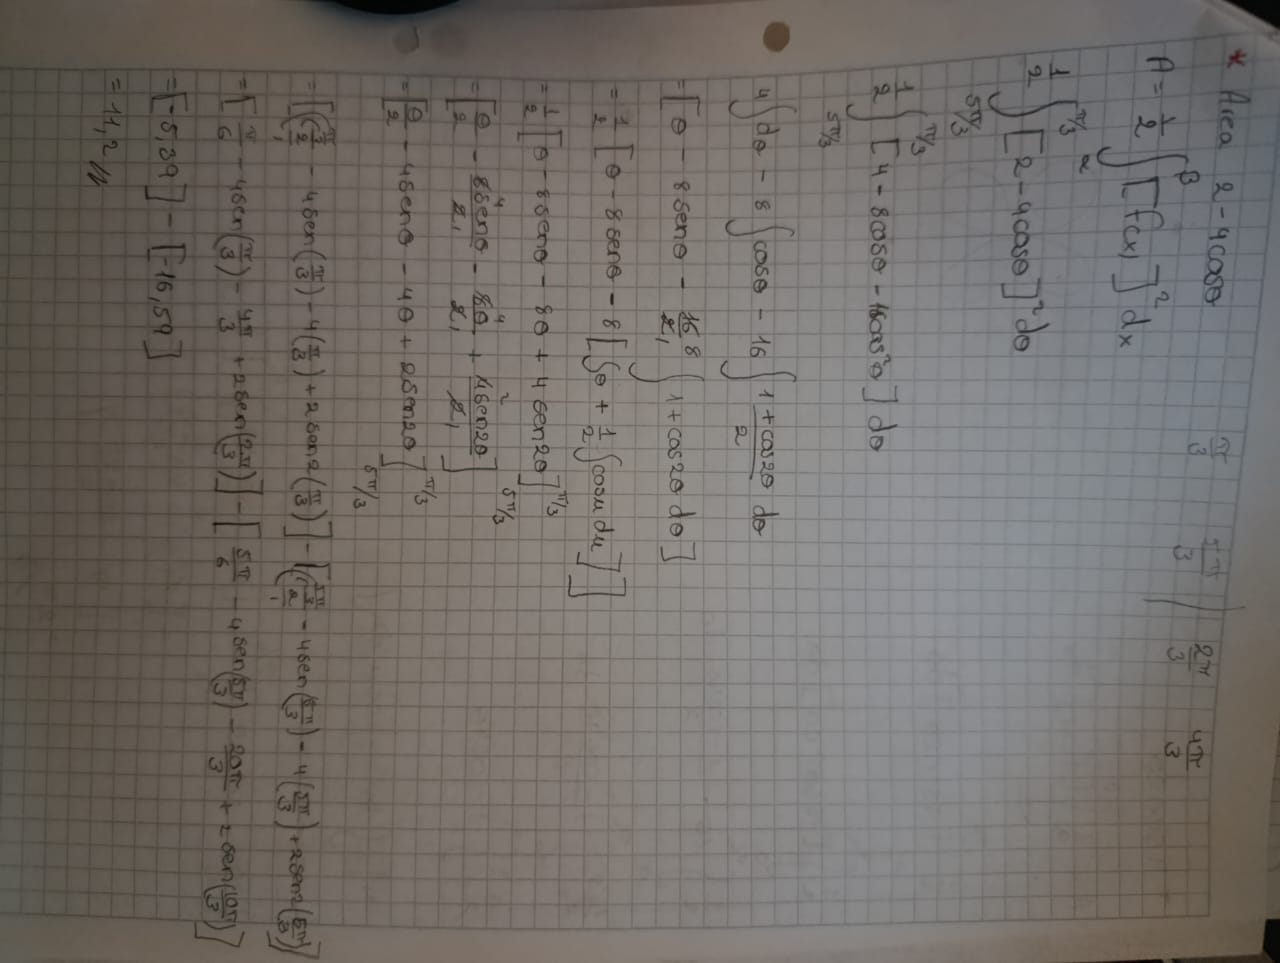 * Area 2 - 4cosθ
π/3 5π/3 2π/3 4π/3
A = 1/2 ∫_α^β [f(x)]² dx
1/2 ∫_{5π/3}^{π/3} [2 - 4cosθ]² dθ
1/2 ∫_{5π/3}^{π/3} [4 - 8cosθ - 16cos²θ] dθ
4∫dθ - 8∫cosθ - 16 ∫ 1 + cos2θ/2 dθ
= [θ - 8senθ - 16/2 8/1 ∫ 1 + cos2θ dθ]
= 1/2 [θ - 8senθ - 8 [∫θ + 1/2 ∫cosu du]]
= 1/2 [θ - 8senθ - 8θ + 4sen2θ]_{5π/3}^{π/3}
= [θ/2 - 8⁴senθ/2₁ - 8⁴θ/2₁ + 4²sen2θ/2₁]
= [θ/2 - 4senθ - 4θ + 2sen2θ]_{5π/3}^{π/3}
= [(π/3)/2₁ - 4sen(π/3) - 4(π/3) + 2sen2(π/3)] - [(5π/3)/2₁ - 4sen(5π/3) - 4(5π/3) + 2sen2(5π/3)]
= [π/6 - 4sen(π/3) - 4π/3 + 2sen(2π/3)] - [5π/6 - 4sen(5π/3) - 20π/3 + 2sen(10π/3)]
= [-5,39] - [-16,59]
= 11,2 //